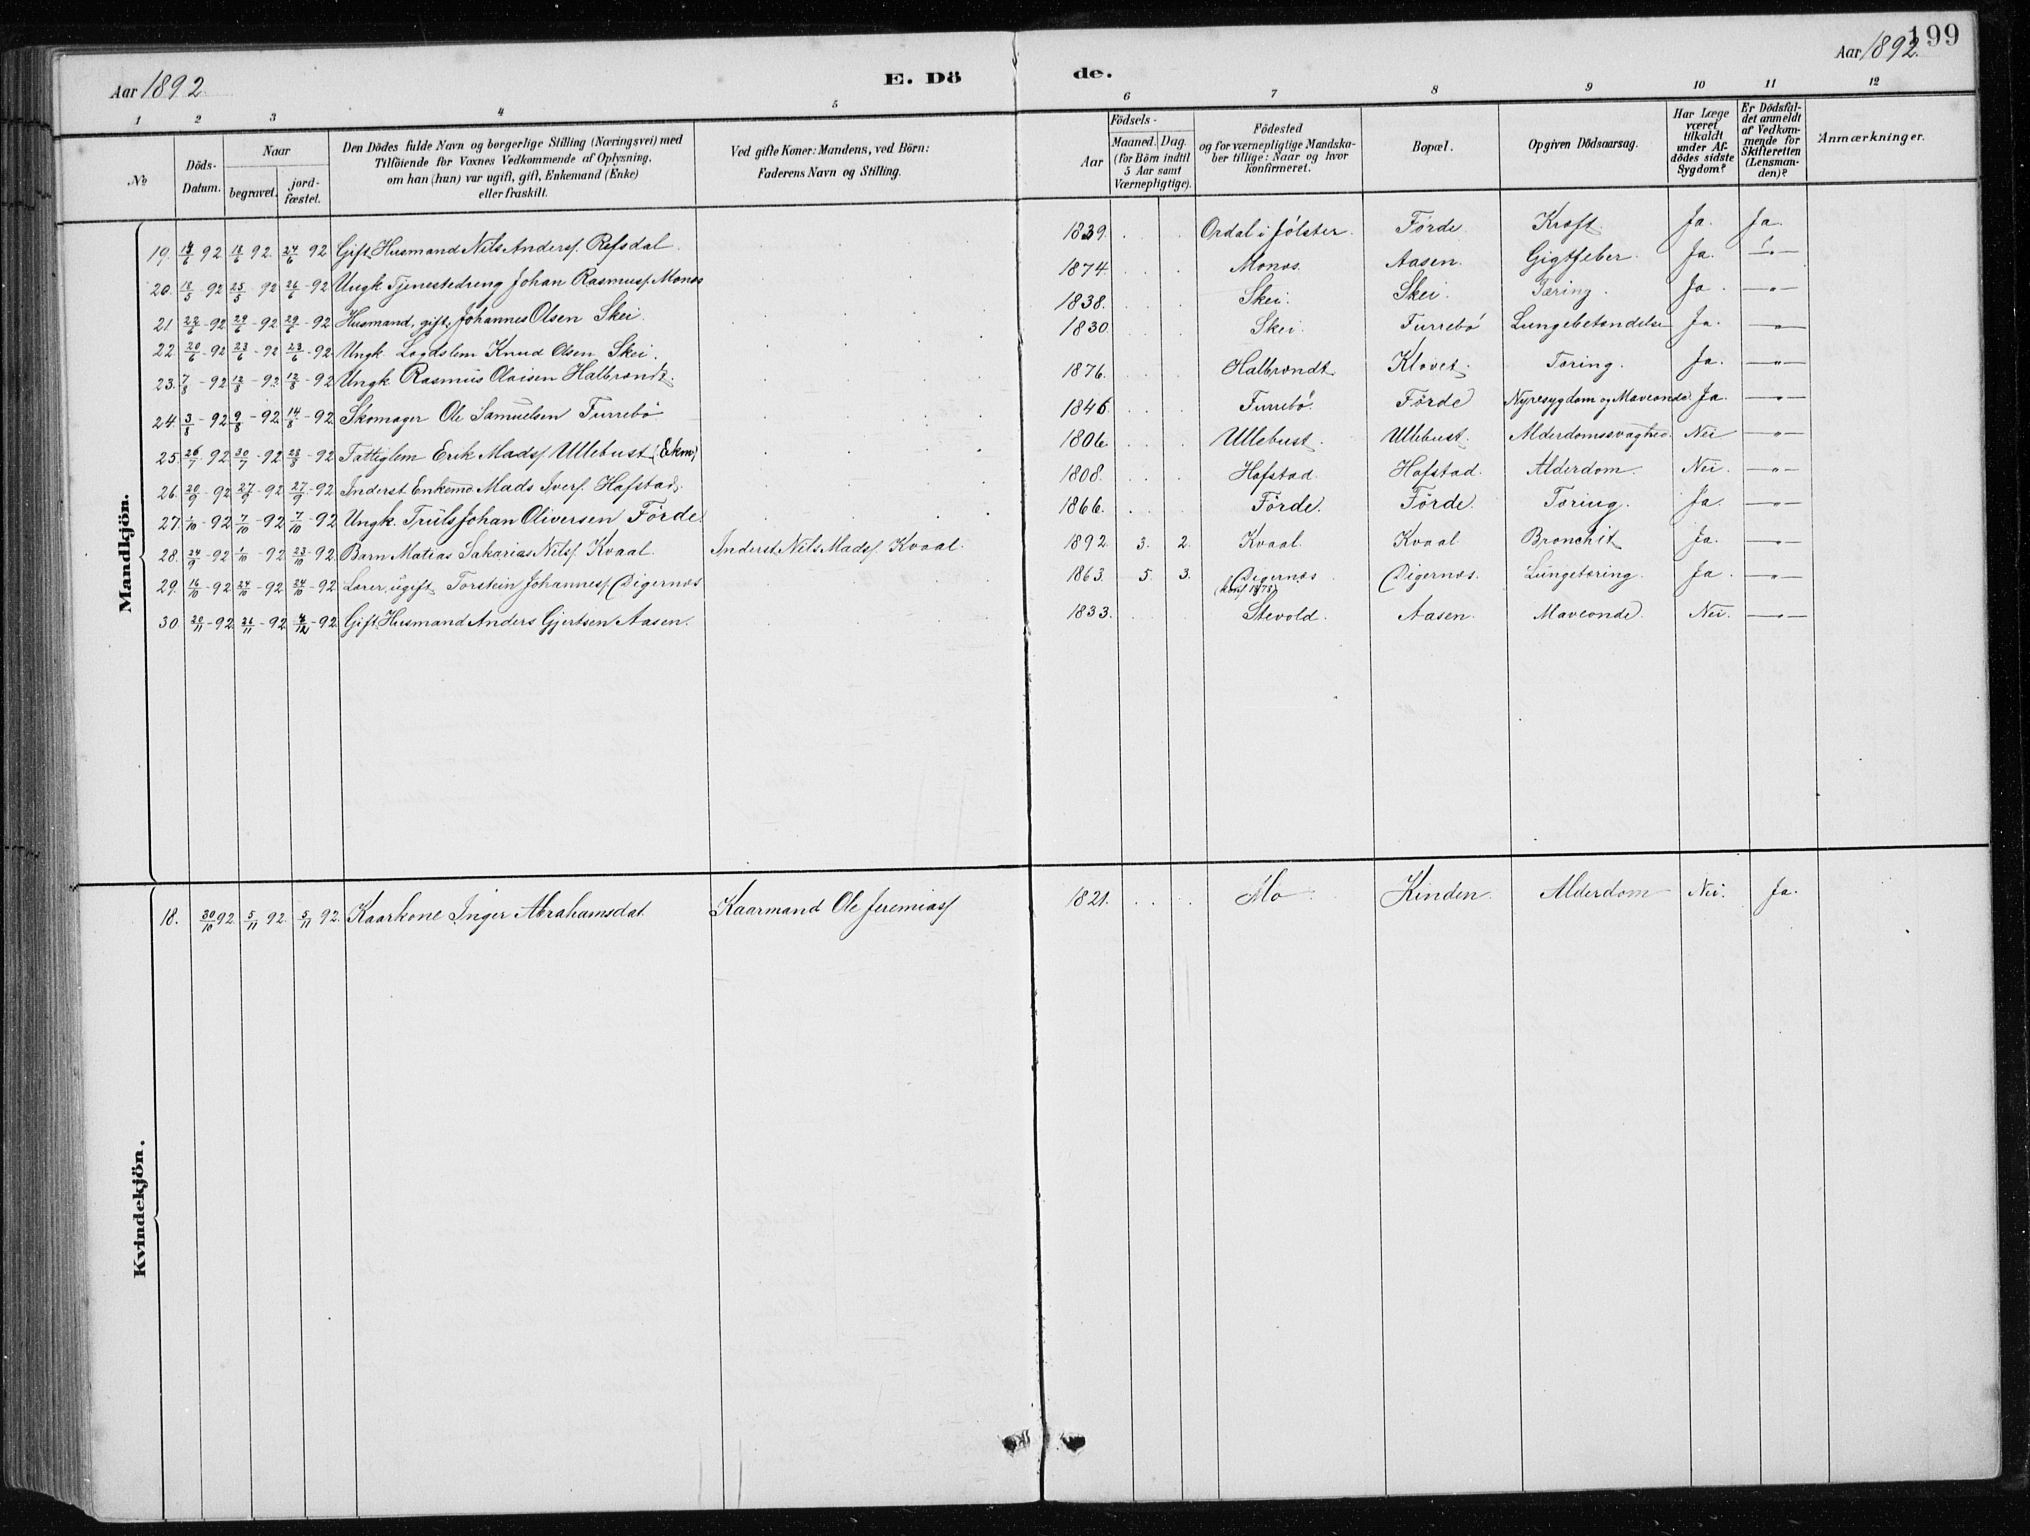 199
Aar 1892.
E. Dö
de.
Aar 1892.
1 2 3 4 5 6 7 8 9 10 11 12
No
Döds-Datum.
Naar
begravet. jord-fæstet.
Den Dödes fulde Navn og borgerlige Stilling (Næringsvei) med
Tilföiende for Voxnes Vedkommende af Oplysning,
om han (hun) var ugift, gift, Enkemand (Enke)
eller fraskilt.
Ved gifte Koner: Mandens, ved Börn:
Faderens Navn og Stilling.
Födsels-
Aar
Maaned. Dag.
(for Börn indtil
5 Aar samt
Værnepligtige).
Födested
og for værnepligtige Mandska-
ber tillige: Naar og hvor
konfirmeret.
Bopæl.
Opgiven Dödsaarsag.
Har Læge
været
tilkaldt
under Af-
dödes sidste
Sygdom?
Er Dödsfal-
det anmeldt
af Vedkom-
mende for
Skifteretten
(Lensman-
den)?
Anmærkninger.
Mandkjön.
19. 92 18/6 92. 24/6 92 Gift Husmand Nils Anders. Refsdal. 1839 Ordal i Jølster. Førde. Kræft Ja. Ja.
20. 18/5 92 25/5 92 26/6 92 Ungk Tjenestedreng Johan Rasmus. Monæs 1874 Monæs. Aasen. Gigtfeber. Ja. -"-
21 22/6 92 29/6 92 29/6 92 Husmand, gift, Johannes Olsen Skei. 1838. Skei. Skei. Tæring. Ja -"-
22 20/6 92 23/6 92 23/6 92 Ungk. Lægdslem Knud Olsen Skei. 1830. Skei. Furrebø Lungebetændelse Ja. -"-
23. 7/8 92 12/8 92 12/8 92 Ungk Rasmus Olaisen Halbrændt. 1876. Halbrændt Klovet. Tæring. Ja. -"-
24. 3/8 92 9/8 92 14/8 92 Skomager Ole Samuelsen Furrebø 1846 Furrebø. Førde Nyresygdom og Maveonde. Ja. -"-
25 26/7 92 30/7 92 28/8 92 Fattiglem Erik Mads. Ullebust (Ekm) 1806. Ullebust. Ullebust. Alderdomssvaghed. Nei -"-
26. 20/9 92 27/9 92 27/9 92 Inderst Enkemd Mads Ivers. Hafstad. 1808. Hafstad Hafstad. Alderdom. Nei. -"-
27. 1/10 92 7/10 92 7/10 92 Ungk. Truls Johan Oliversen Førde 1866. Førde. Førde. Tæring. Ja. -"-
28. 24/9 92 1/10 92 23/10 92 Barn Matias Sakarias Nils. Kvaal. Inderst Nils Mads. Kvaal. 1892. 3. 2. Kvaal. Kvaal Bronchit Ja. -"-
29. 16/10 92 24/10 92 24/10 92 Lærer, ugift Torstein Johannes. Digernæs 1863. 5. 3. Digernæs (konf. 1878) Digernæs. Lungetæring. Ja. -"-
30. 20/11 92 26/11 92 4/12 92 Gift Husmand Anders Gjertsen Aasen. 1833. Stevold. Aasen. Maveonde. Nei. -"-
Kvindekjön.
18. 30/10 92. 5/11 92. 5/11 92. Kaarkone Inger Abrahamsdat. Kaarmand Ole Jeremias. 1821. Mo Kinden. Alderdom Nei. Ja.